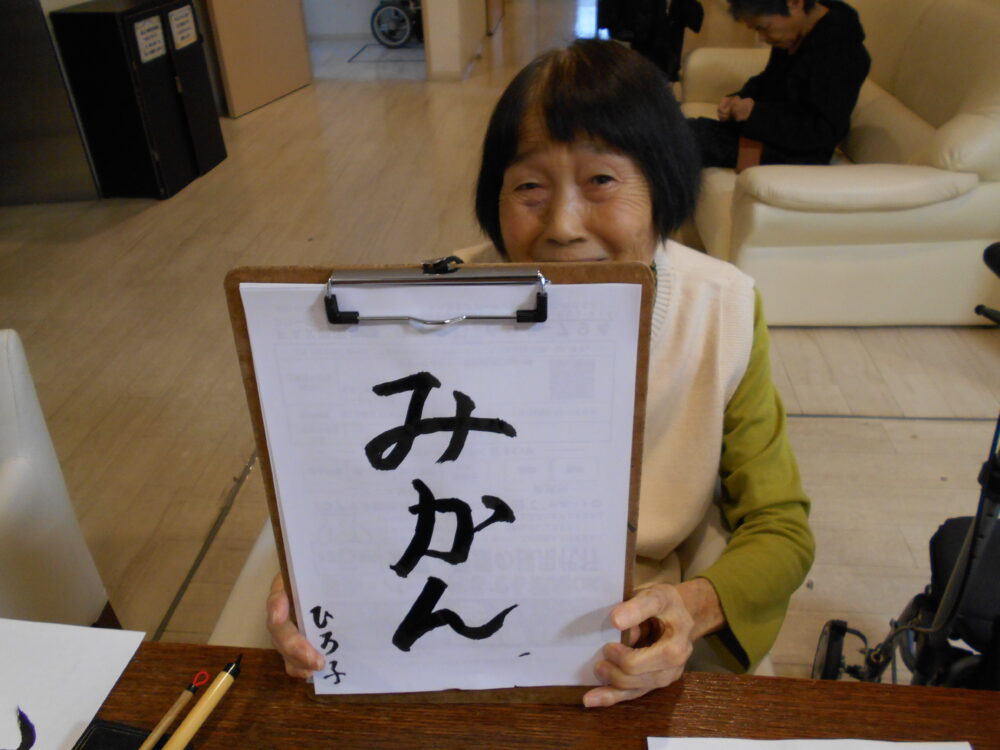 みかん
ひろ子